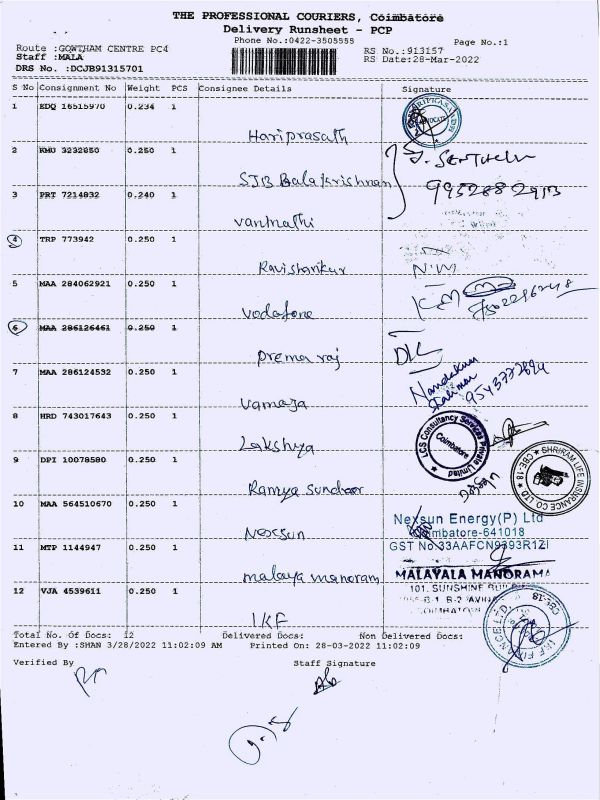 THE PROFESSIONAL COURIERS, Coimbatore
Delivery Runsheet - PCP
Phone No.:0422-3505555
Page No.:1
Route :GOWTHAM CENTRE PC4
RS No.:913157
Staff :MALA
RS Date:28-Mar-2022
DRS No. :DCJB91315701
S No Consignment No Weight PCS Consignee Details Signature
1 EDQ 16515970 0.234 1
Hariprasath
ADVOCATE
2 KMU 3232850 0.250 1
SJB Balakrishnan
3 PRT 7214832 0.240 1
vanmathi
4 TRP 773942 0.250 1
Ravishankar
N.M
5 MAA 284062921 0.250 1
vodafone
6 MAA 286126461 0.250 1
prema raj
7 MAA 286124532 0.250 1
Nandakumar
8 HRD 743017643 0.250 1
Lakshya
LCS Consultancy Services Private Limited
Coimbatore
9 DPI 10078580 0.250 1
Ramya Sundar
SHRIRAM LIFE INSURANCE CO LTD
CBE-18
10 MAA 564510670 0.250 1
Nexsun
Nexsun Energy(P) Ltd
Coimbatore-641018
11 MTP 1144947 0.250 1
GST No.33AAFCN9393R1ZI
malaya manoram
MALAYALA MANORAMA
101. SUNSHINE
12 VJA 4539611 0.250 1
IKF
IKF FINANCE LTD
CBE-18
Total No. Of Docs: 12 Delivered Docs: Non Delivered Docs:
Entered By :SHAN 3/28/2022 11:02:09 AM Printed On: 28-03-2022 11:02:09
Verified By Staff Signature